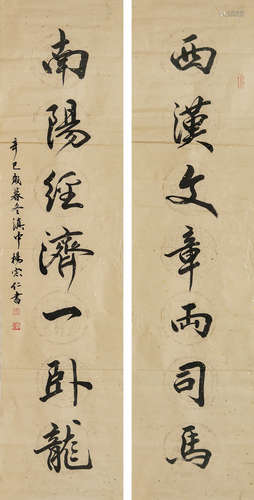 西漢文章兩司馬
南陽經濟一卧龍
辛巳歲暮冬滇中楊宗仁書